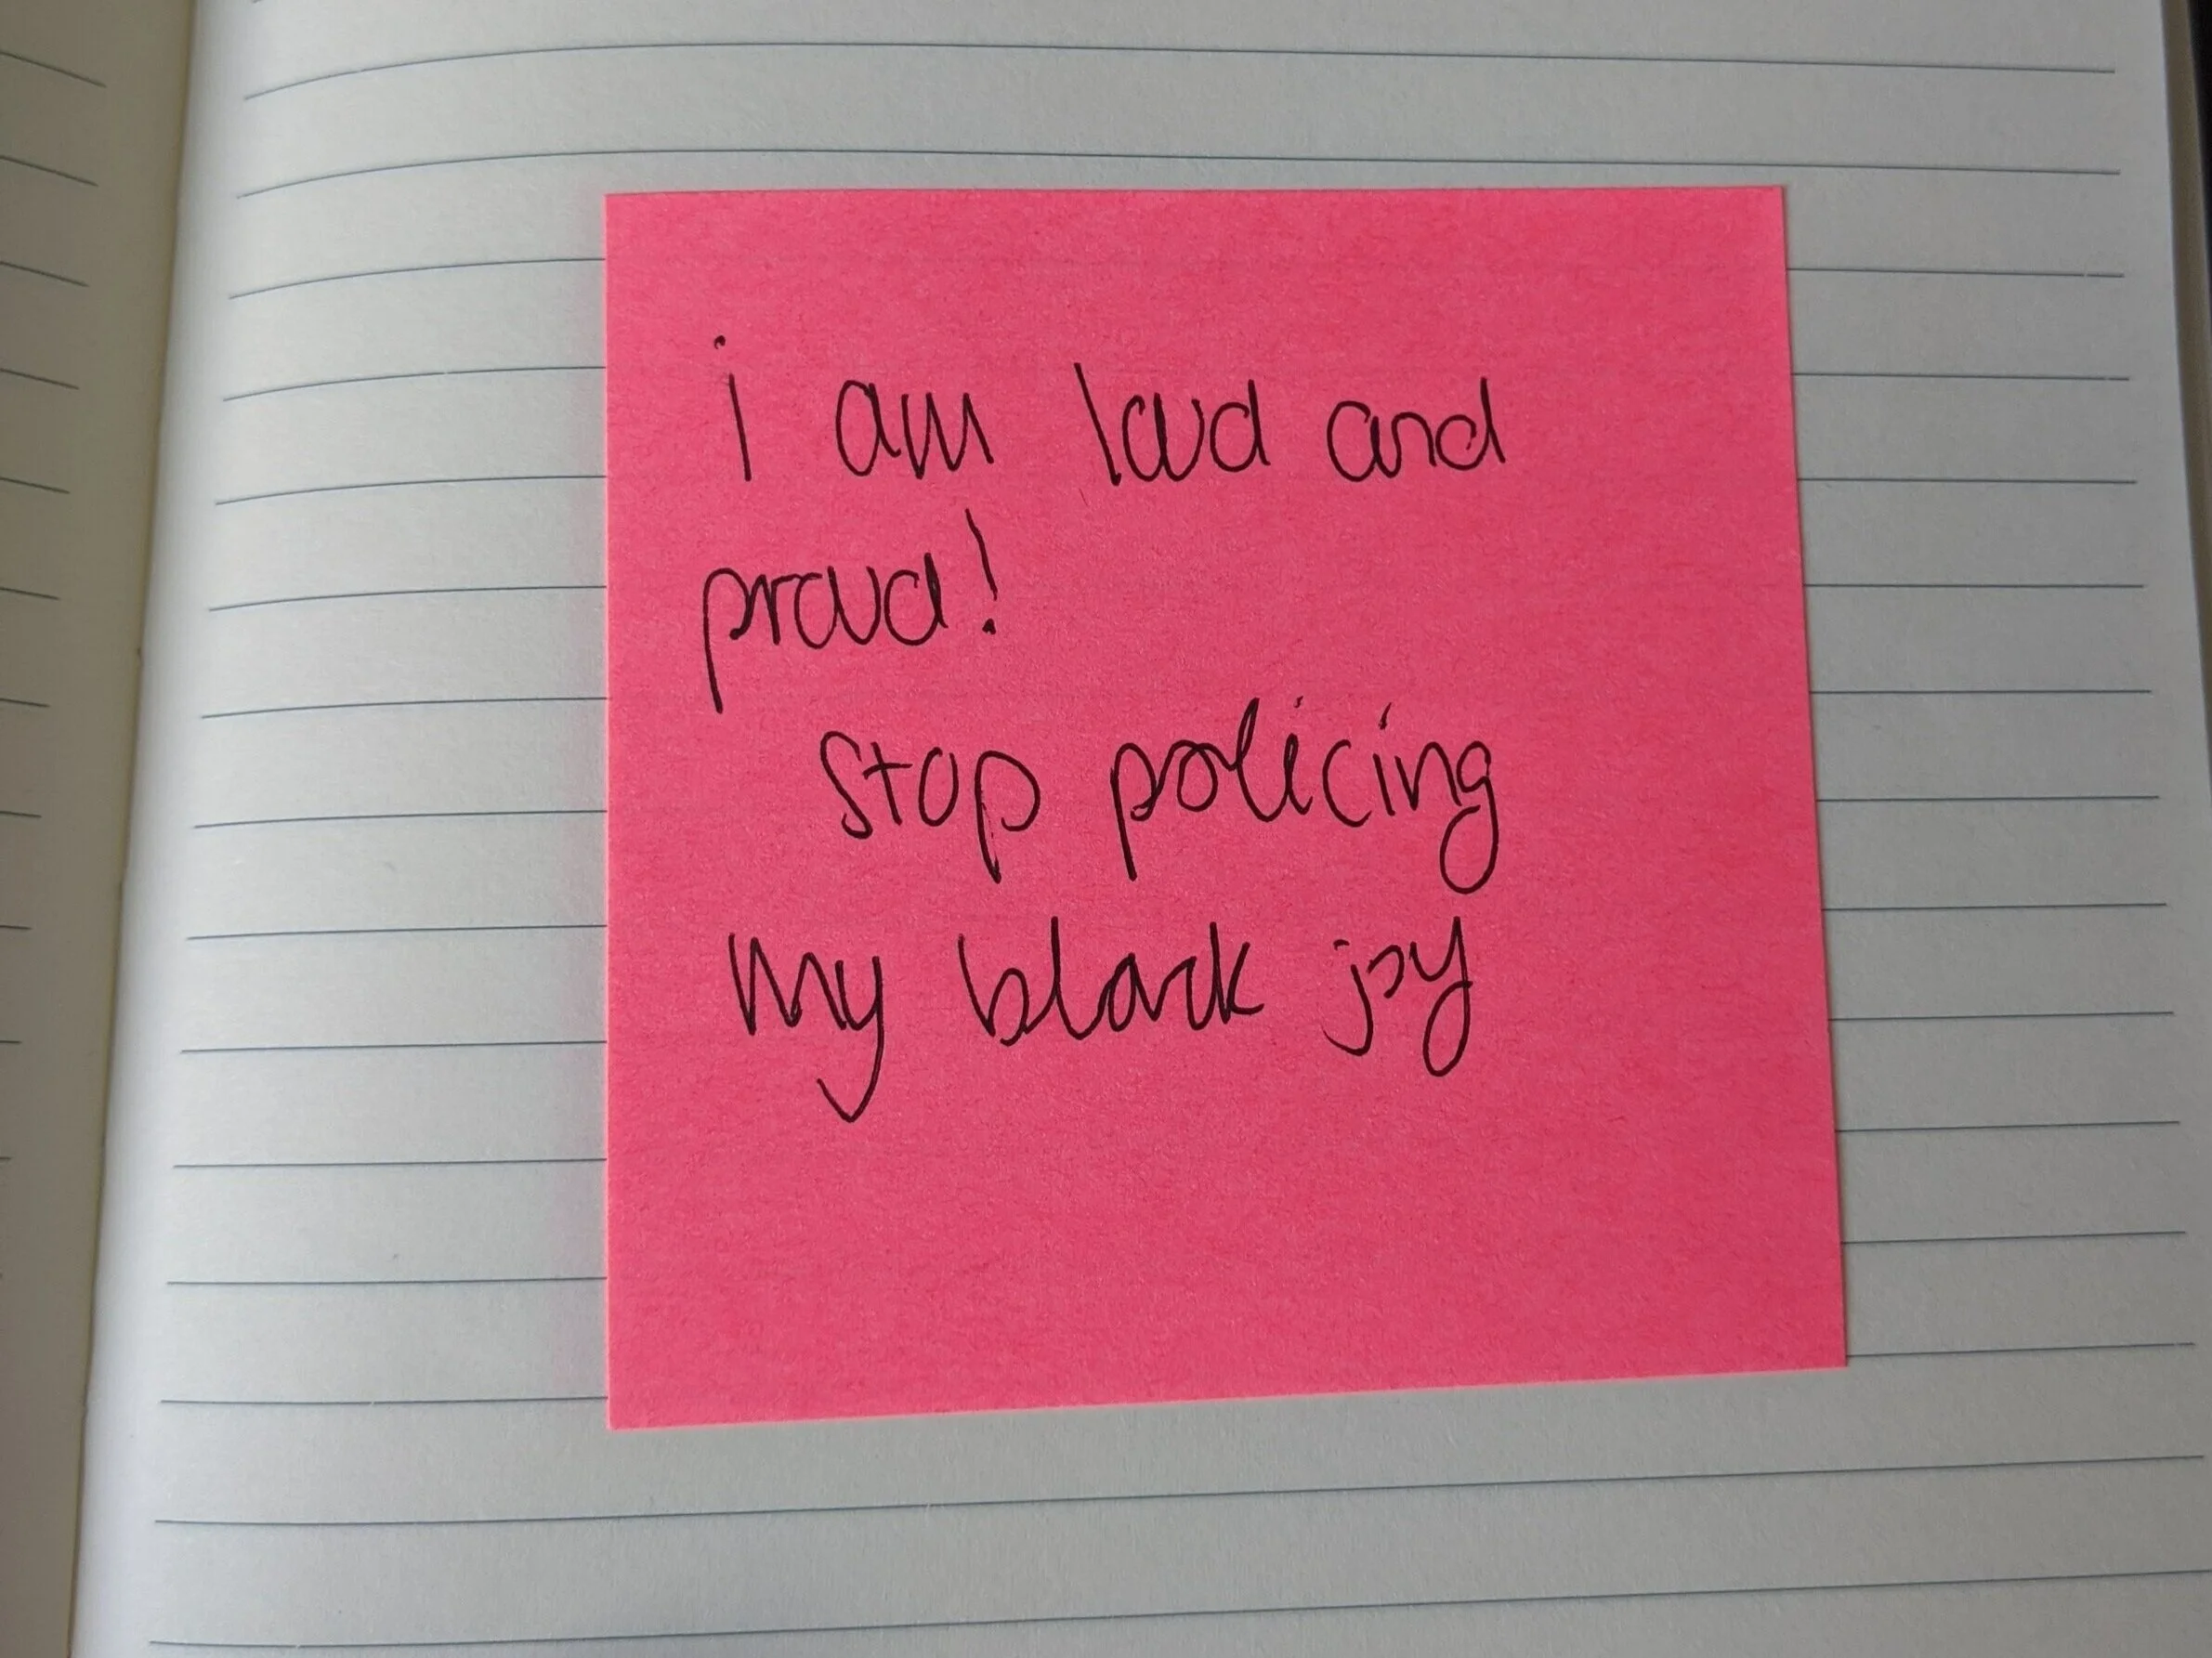 i am loud and
proud!
stop policing
my black joy